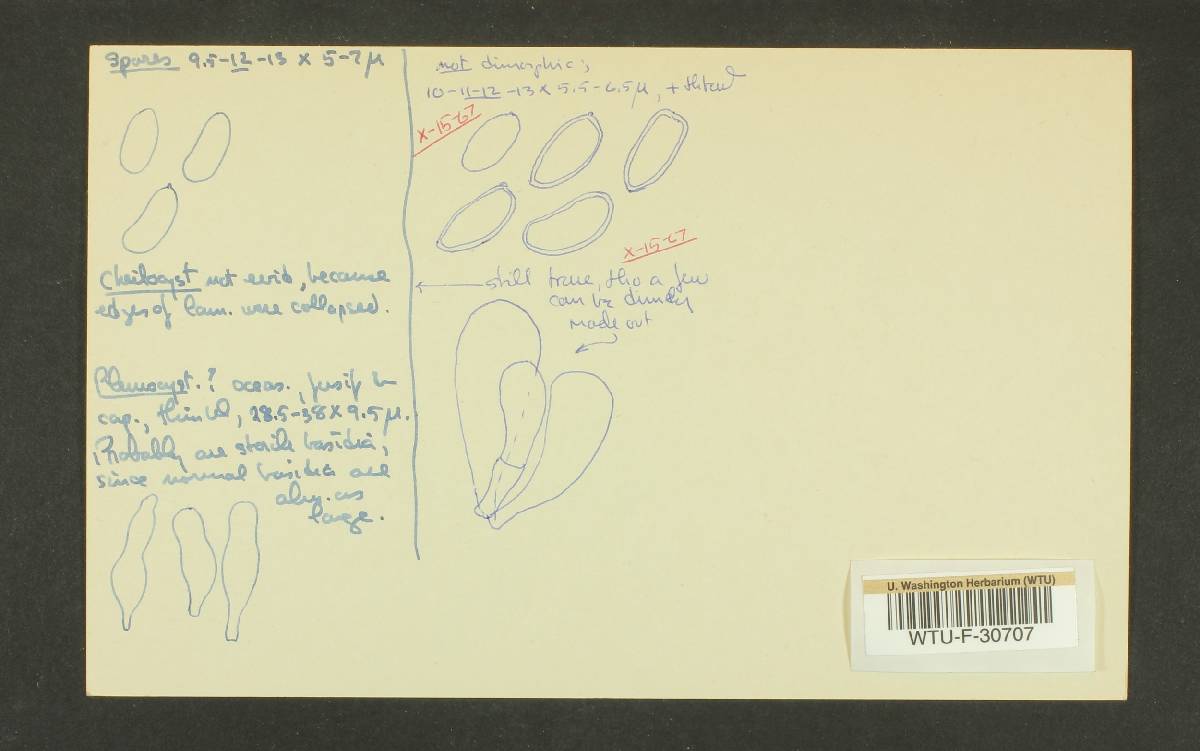 Spores 9.5-12-13 x 5-7 µ
Cheilocyst not evid, because
edges of lam. were collapsed.
Pleurocyst. ? occas., fusif to
cap., thinwld, 28.5-38 x 9.5 µ.
Probably are sterile basidia,
since normal basidia are
as
large.
not dimorphic;
10-11-12-13 x 5.5-6.5 µ, +
X-15-67
X-15-67
still true, tho a few
can be dimly
made out
U. Washington Herbarium (WTU)
WTU-F-30707